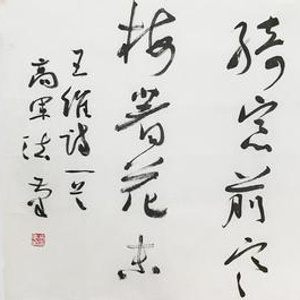 綺窗前寒
梅著花未
王維詩一首
高軍法書